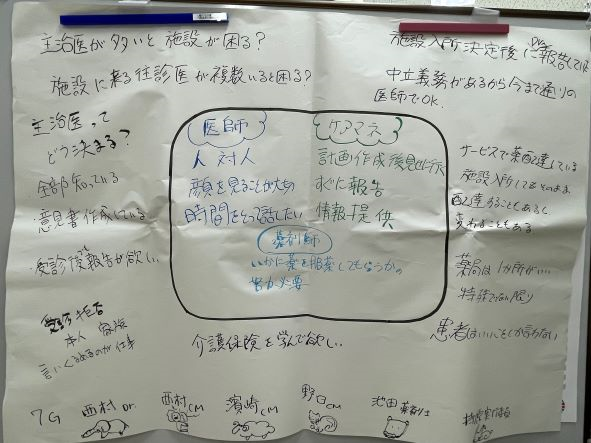 主治医が多いと施設が困る?
施設に来る往診医が複数いると困る?
主治医って
どう決まる?
全部知っている
意見書作成している
受診後報告が欲しい
受診拒否
本人 家族
言いくるめるのが仕事
施設入所決定後に報告してほしい
中立義務があるから今まで通りの
医師でOK.
医師
人対人
顔を見ることが大切
時間をとって話したい
ケアマネ
計画作成後見せに行く
すぐに報告
情報提供
薬剤師
いかに薬を服薬してもらうか。
努力必要
サービスで薬配達している
施設入所してもそのまま
配達することもあるし
変わることもある
薬局は1カ所がいい
特殊でない限り
患者はいいことしか言わない
介護保険を学んで欲しい
7G 西村Dr. 西村CM 濱崎CM 野口CM 池田薬剤士